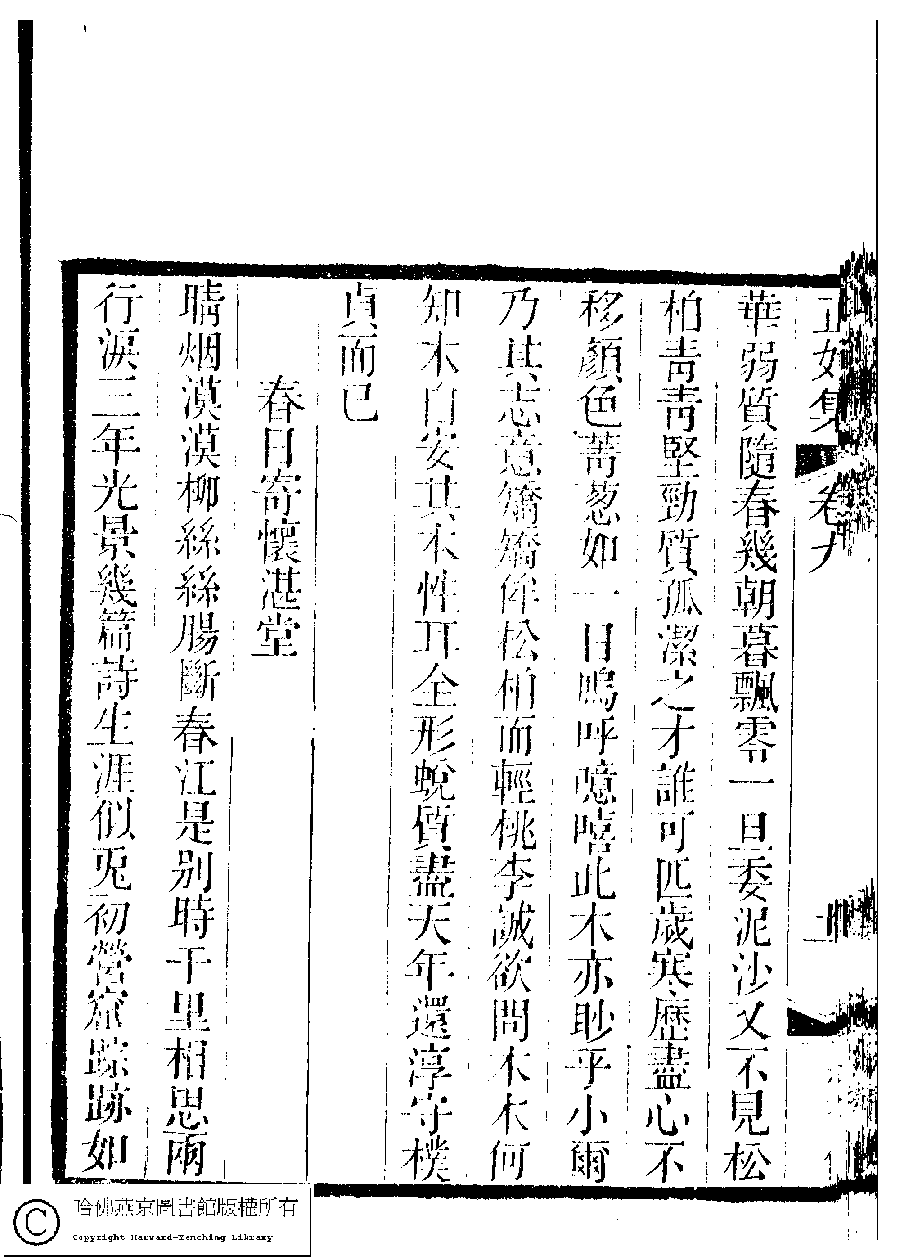 正始集 卷九
華弱質隨春幾朝暮飄零一旦委泥沙又不見松
柏青青堅勁質孤潔之才誰可匹歲寒歷盡心不
移顏色菁葱如一日嗚呼噫嘻此木亦眇乎小爾
乃其志意矯矯侔松柏而輕桃李誠欲問木木何
知木自安其木性耳全形蛻質盡天年還淳守樸
眞而已
春日寄懷湛堂
晴烟漠漠柳絲絲腸斷春江是别時千里相思兩
行淚三年光景幾篇詩生涯似兎初營窟踪跡如
哈佛燕京圖書館版權所有
Copyright Harvard-Yenching Library